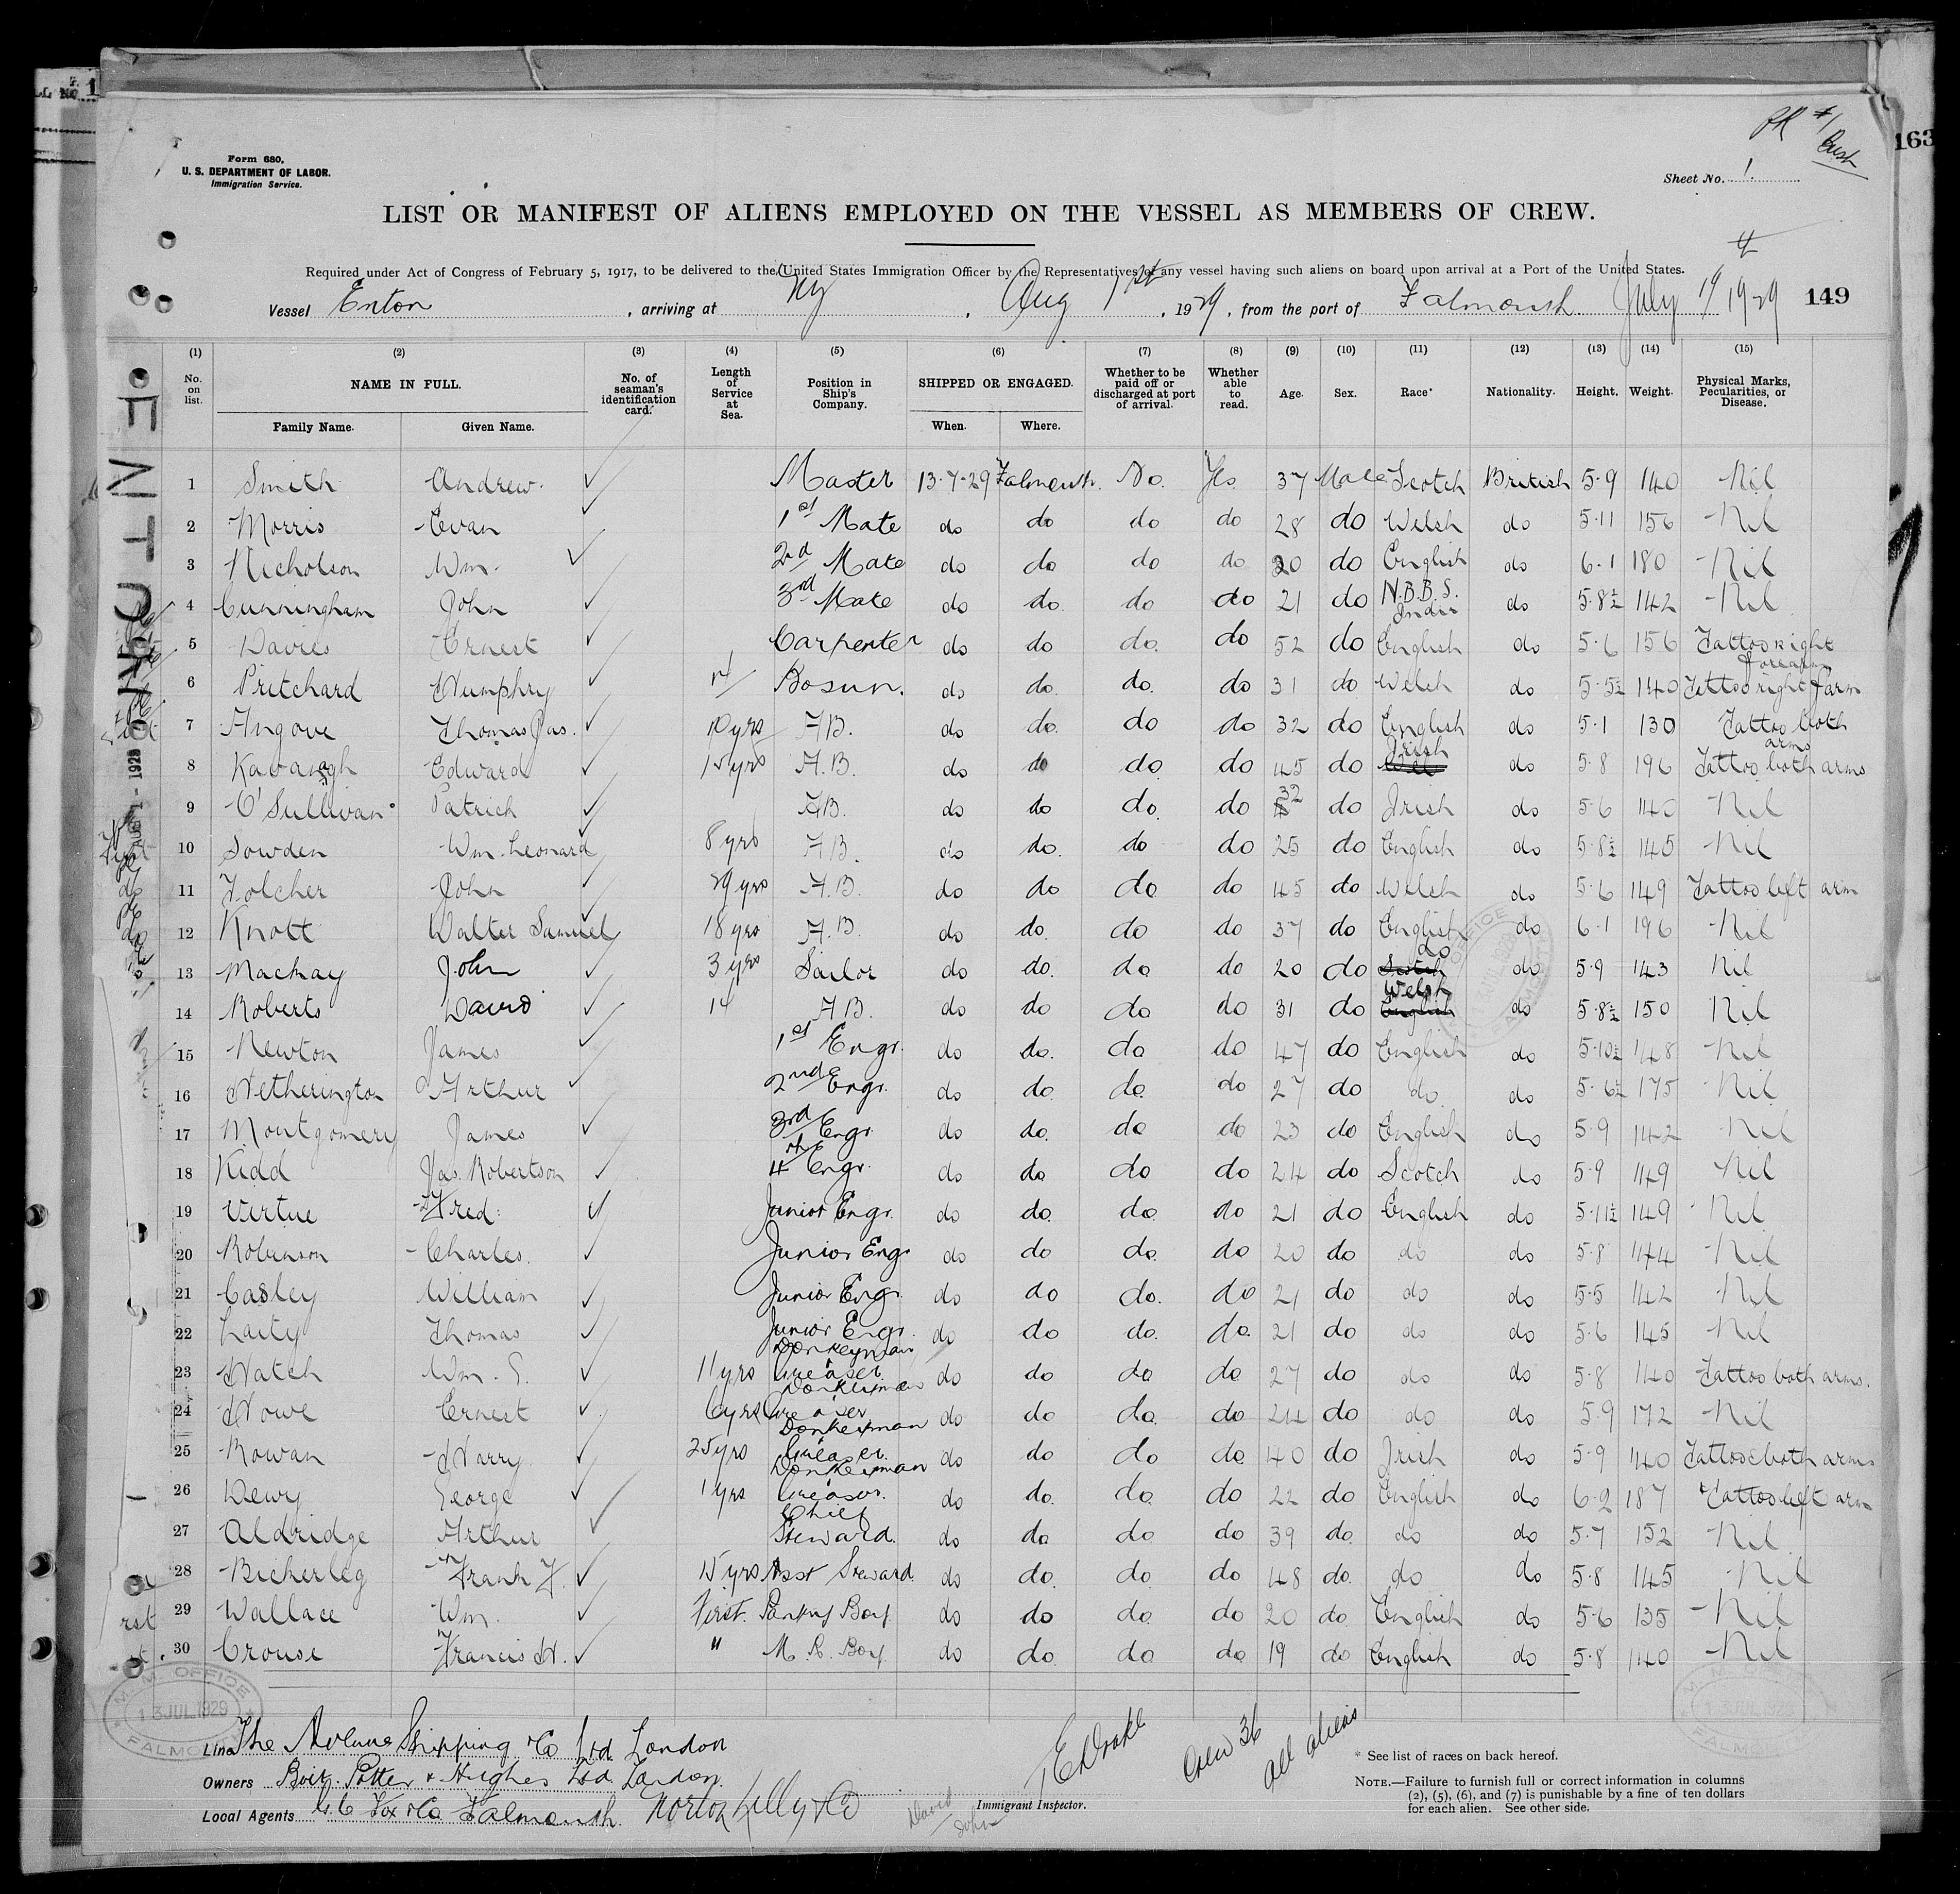 163
Form 680.
U. S. DEPARTMENT OF LABOR.
Immigration Service.
Sheet No. 1.
LIST OR MANIFEST OF ALIENS EMPLOYED ON THE VESSEL AS MEMBERS OF CREW.
Required under Act of Congress of February 5, 1917, to be delivered to the United States Immigration Officer by the Representatives of any vessel having such aliens on board upon arrival at a Port of the United States.
Vessel Enton, arriving at Ny, Aug 1st, 1929, from the port of Falmouth July 19 1929 149
(1) (2) (3) (4) (5) (6) (7) (8) (9) (10) (11) (12) (13) (14) (15)
No. on list. NAME IN FULL. Family Name. Given Name. No. of seaman's identification card. Length of Service at Sea. Position in Ship's Company. SHIPPED OR ENGAGED. When. Where. Whether to be paid off or discharged at port of arrival. Whether able to read. Age. Sex. Race* Nationality. Height. Weight. Physical Marks, Pecularities, or Disease.
1 Smith Andrew. Master 13-7-29 Falmouth. No. Yes 37 Male Scotch British 5-9 140 Nil
2 Morris Evan 1st Mate do do do do 28 do Welsh do 5-11 156 Nil
3 Nicholson Wm. 2nd Mate do do do do 20 do English do 6-1 180 Nil
4 Cunningham John 3rd Mate do do. do do 21 do N.B.B.S. India do 5-8½ 142 Nil
5 Davies Ernest Carpenter do do do. do 52 do English do 5-6 156 Tattoo right forearm
6 Pritchard Humphry 14 Bosun. do do. do. do 31 do Welsh do 5-5½ 140 Tattoo right farm
7 Angove Thomas Jas. 10 yrs A.B. do do. do do 32 do English do 5-1 130 Tattoo both arms
8 Kavanagh Edward 15 yrs A.B. do do do. do 45 do Irish do 5-8 196 Tattoo both arms
9 O'Sullivan Patrick A.B. do do do. do 32 do Irish do 5-6 140 Nil
10 Sowden Wm. Leonard 8 yrs A.B. do do. do do 25 do English do 5-8½ 145 Nil
11 Folcher John 29 yrs A.B. do do do do 45 do Welsh do 5-6 149 Tattoo left arm
12 Knott Walter Samuel 18 yrs A.B. do do. do do 37 do English do 6-1 196 Nil
13 Mackay John 3 yrs Sailor do do. do do 20 do Scotch do do 5-9 143 Nil
14 Roberts David 14 A.B. do do do do 31 do English Welsh do 5-8½ 150 Nil
15 Newton James 1st Engr. do do. do do 47 do English do 5-10½ 148 Nil
16 Hetherington Arthur 2nd Engr. do do. do. do 27 do do. do 5-6½ 175 Nil
17 Montgomery James 3rd Engr do do. do do 23 do English do 5-9 142 Nil
18 Kidd Jas. Robertson 4th Engr. do do do do 24 do Scotch do 5-9 149 Nil
19 Virtue Fred. Junior Engr. do do. do. do 21 do English do 5-11½ 149 Nil
20 Robinson Charles. Junior Engr do do do. do 20 do do do 5-8 144 Nil
21 Casley William Junior Engr. do do do. do 21 do do do 5-5 142 Nil
22 Laity Thomas Junior Engr. do do do. do. 21 do do do 5-6 145 Nil
23 Hatch Wm. G. 11 yrs Donkeyman Greaser do do do do 27 do do do 5-8 140 Tattoo both arms.
24 Howe Ernest 6 yrs Donkeyman Greaser do do do. do 24 do do do 5-9 172 Nil
25 Rowan Harry. 25 yrs Donkeyman Greaser. do do do do 40 do Irish do 5-9 140 Tattoo both arms
26 Dewy George 1 yrs Donkeyman Greaser. do do. do. do 22 do English do 6-2 187 Tattoo left arm
27 Aldridge Arthur Chief Steward. do do do do 39 do. do do 5-7 152 Nil
28 Bickerleg Frank F. 15 yrs Asst Steward. do do. do. do 48 do. do do 5-8 145 Nil
29 Wallace Wm. First. Pantry Boy do do do do 20 do. English do 5-6 135 Nil
30 Crouse Francis H. " M. R. Boy. do do. do do 19 do English do 5-8 140 Nil
M. M. OFFICE
13 JUL.1929
FALMOUTH
Line The Shipping Co Ltd. London
Owners Potter & Hughes Ltd. London.
Local Agents G. C. Fox & Co. Falmouth. Norton Lilly & Co
Immigrant Inspector.
Crew 36
all aliens
David
John
* See list of races on back hereof.
NOTE.—Failure to furnish full or correct information in columns
(2), (5), (6), and (7) is punishable by a fine of ten dollars
for each alien. See other side.